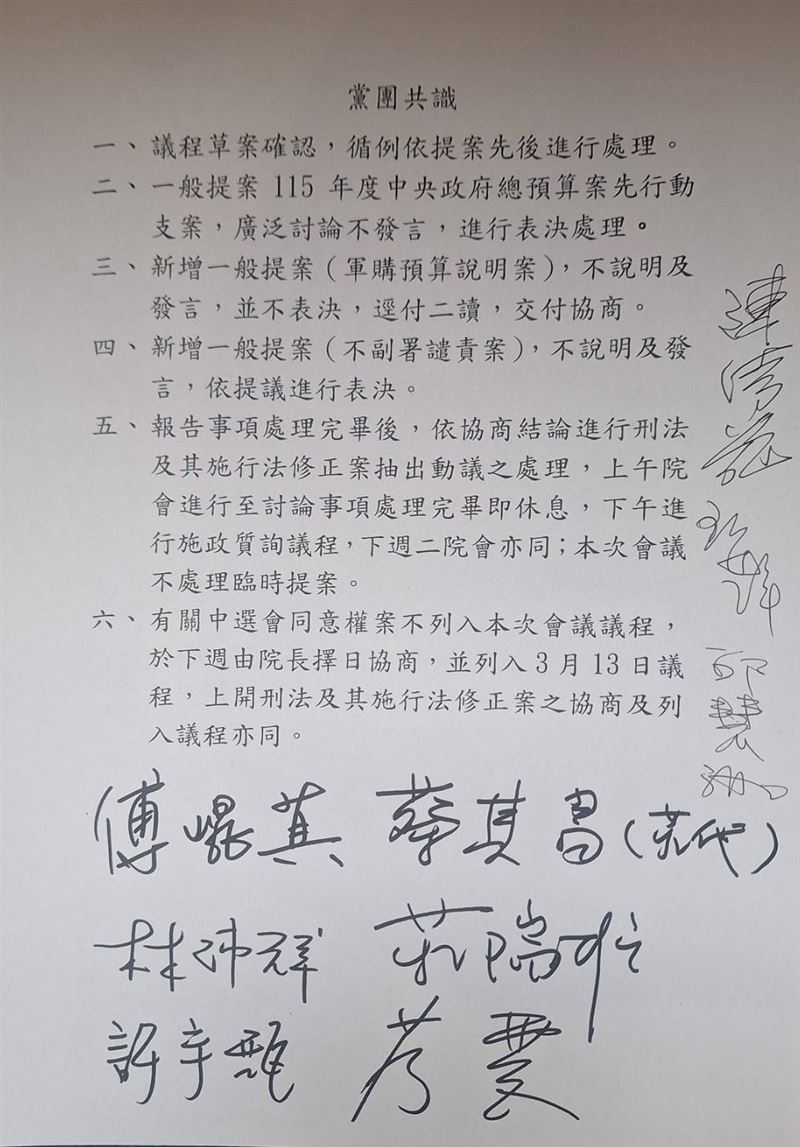 黨團共識
一、議程草案確認，循例依提案先後進行處理。
二、一般提案 115 年度中央政府總預算案先行動
支案，廣泛討論不發言，進行表決處理。
三、新增一般提案（軍購預算說明案），不說明及
發言，並不表決，逕付二讀，交付協商。
四、新增一般提案（不副署譴責案），不說明及發
言，依提議進行表決。
五、報告事項處理完畢後，依協商結論進行刑法
及其施行法修正案抽出動議之處理，上午院
會進行至討論事項處理完畢即休息，下午進
行施政質詢議程，下週二院會亦同；本次會議
不處理臨時提案。
六、有關中選會同意權案不列入本次會議議程，
於下週由院長擇日協商，並列入 3 月 13 日議
程，上開刑法及其施行法修正案之協商及列
入議程亦同。
傅崐萁 蔡其昌（莊代）
林沛祥 莊瑞雄
許宇甄
邱慧洳